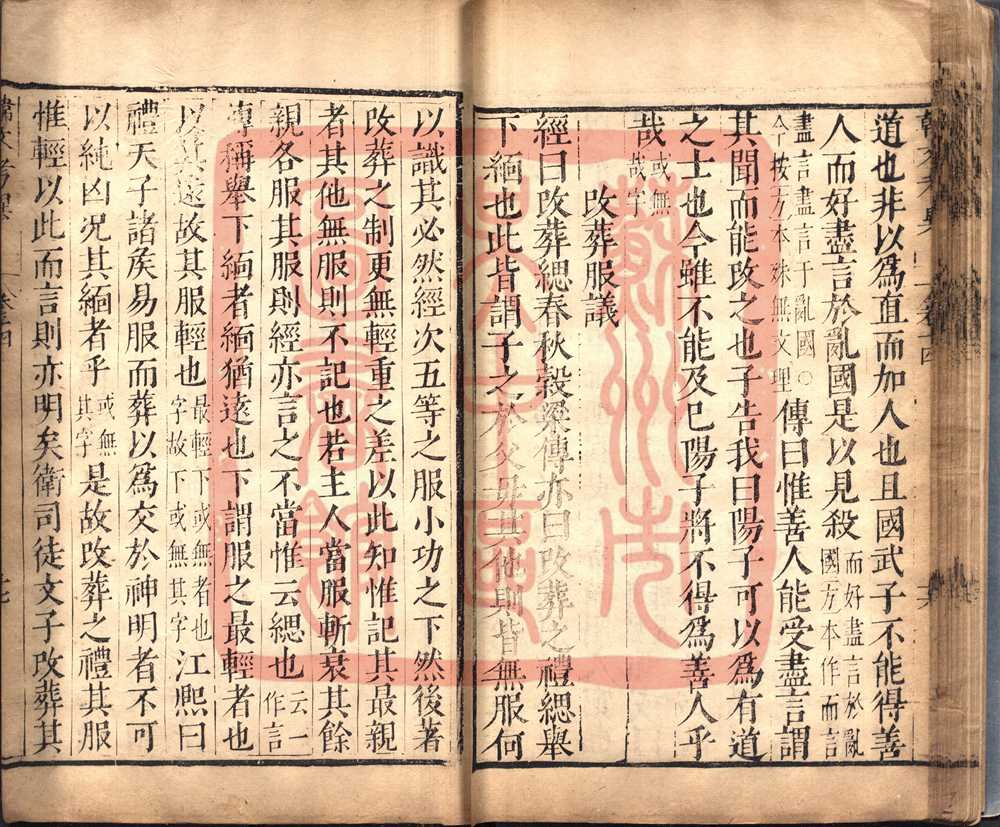 道也非以爲直而加人也且國武子不能得善
人而好盡言於亂國是以見殺而好盡言於亂國方本作而言
盡言盡言于亂國○今按方本殊無文理傳曰惟善人能受盡言謂
其聞而能改之也子告我曰陽子可以爲有道
之士也今雖不能及已陽子將不得爲善人乎
哉或無哉字
改葬服議
經曰改葬緦春秋穀梁傳亦曰改葬之禮緦舉
下緬也此皆謂子之於父母其他則皆無服何
以識其必然經次五等之服小功之下然後著
改葬之制更無輕重之差以此知惟記其最親
者其他無服則不記也若主人當服斬衰其餘
親各服其服則經亦言之不當惟云緦也云一作言
傳稱舉下緬者緬猶遠也下謂服之最輕者也
以其遠故其服輕也最輕下或無者也字故下或無其字江熙曰
禮天子諸矦易服而葬以爲交於神明者不可
以純凶況其緬者乎或無其字是故改葬之禮其服
惟輕以此而言則亦明矣衛司徒文子改葬其
韓文考異
卷十四
蘇州市
圖書館